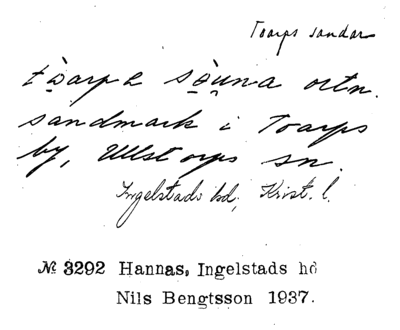 Toarps sandar
tò̤arpa sò̤u̯na ortn.
sandmark i Toarps
by, Ullstorps sn.
Ingelstads hd, Krist. l.
№ 3292 Hannas, Ingelstads hd
Nils Bengtsson 1937.